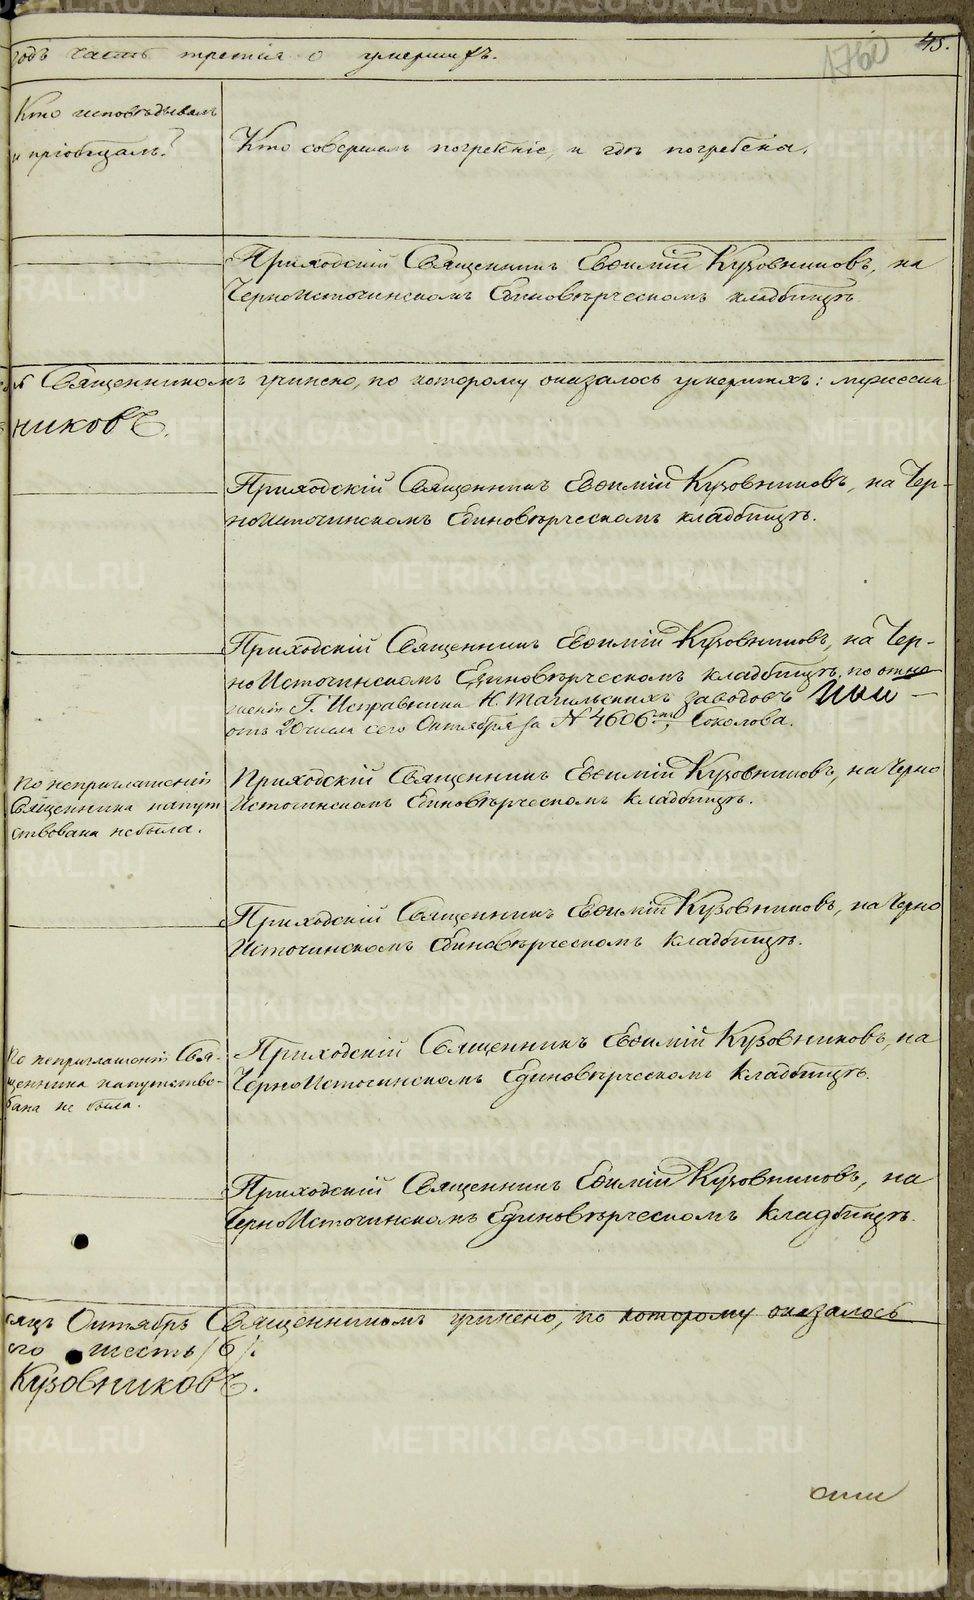 годъ часть третія о умершихъ.
45.
1760
Кто исповѣдывалъ
и пріобщалъ?
Кто совершалъ погребеніе, и гдѣ погребены.
Приходскій Священникъ Евѳимій Кузовниковъ, на
ЧерноИсточинскомъ Единовѣрческомъ кладбищѣ
Священникомъ учинено, по которому оказалось умершихъ: мужеска
никовъ.
Приходскій Священникъ Евѳимій Кузовниковъ, на Чер-
ноИсточинскомъ Единовѣрческомъ кладбищѣ.
Приходскій Священникъ Евѳимій Кузовниковъ, на Чер-
ноИсточинскомъ Единовѣрческомъ кладбищѣ, по отно
шенію Г. Исправника Н. Тагильскихъ заводовъ
отъ 20 числа сего Октября за № 4606мъ, Соколова.
По неприглашенію
Священника напут
ствована небыла.
Приходскій Священникъ Евѳимій Кузовниковъ, на Черно
Источинскомъ Единовѣрческомъ кладбищѣ.
Приходскій Священникъ Евѳимій Кузовниковъ, на Черно
Источинскомъ Единовѣрческомъ кладбищѣ.
По неприглашенію Свя-
щенника напутство-
вана не была.
Приходскій Священникъ Евѳимій Кузовниковъ, на
ЧерноИсточинскомъ Единовѣрческомъ кладбищѣ.
Приходскій Священникъ Евѳимій Кузовниковъ, на
ЧерноИсточинскомъ Единовѣрческомъ кладбищѣ.
сяцъ Октябрь Священникомъ учинено, по которому оказалось
его шесть /6/.
Кузовниковъ.
METRIKI.GASO-URAL.RU